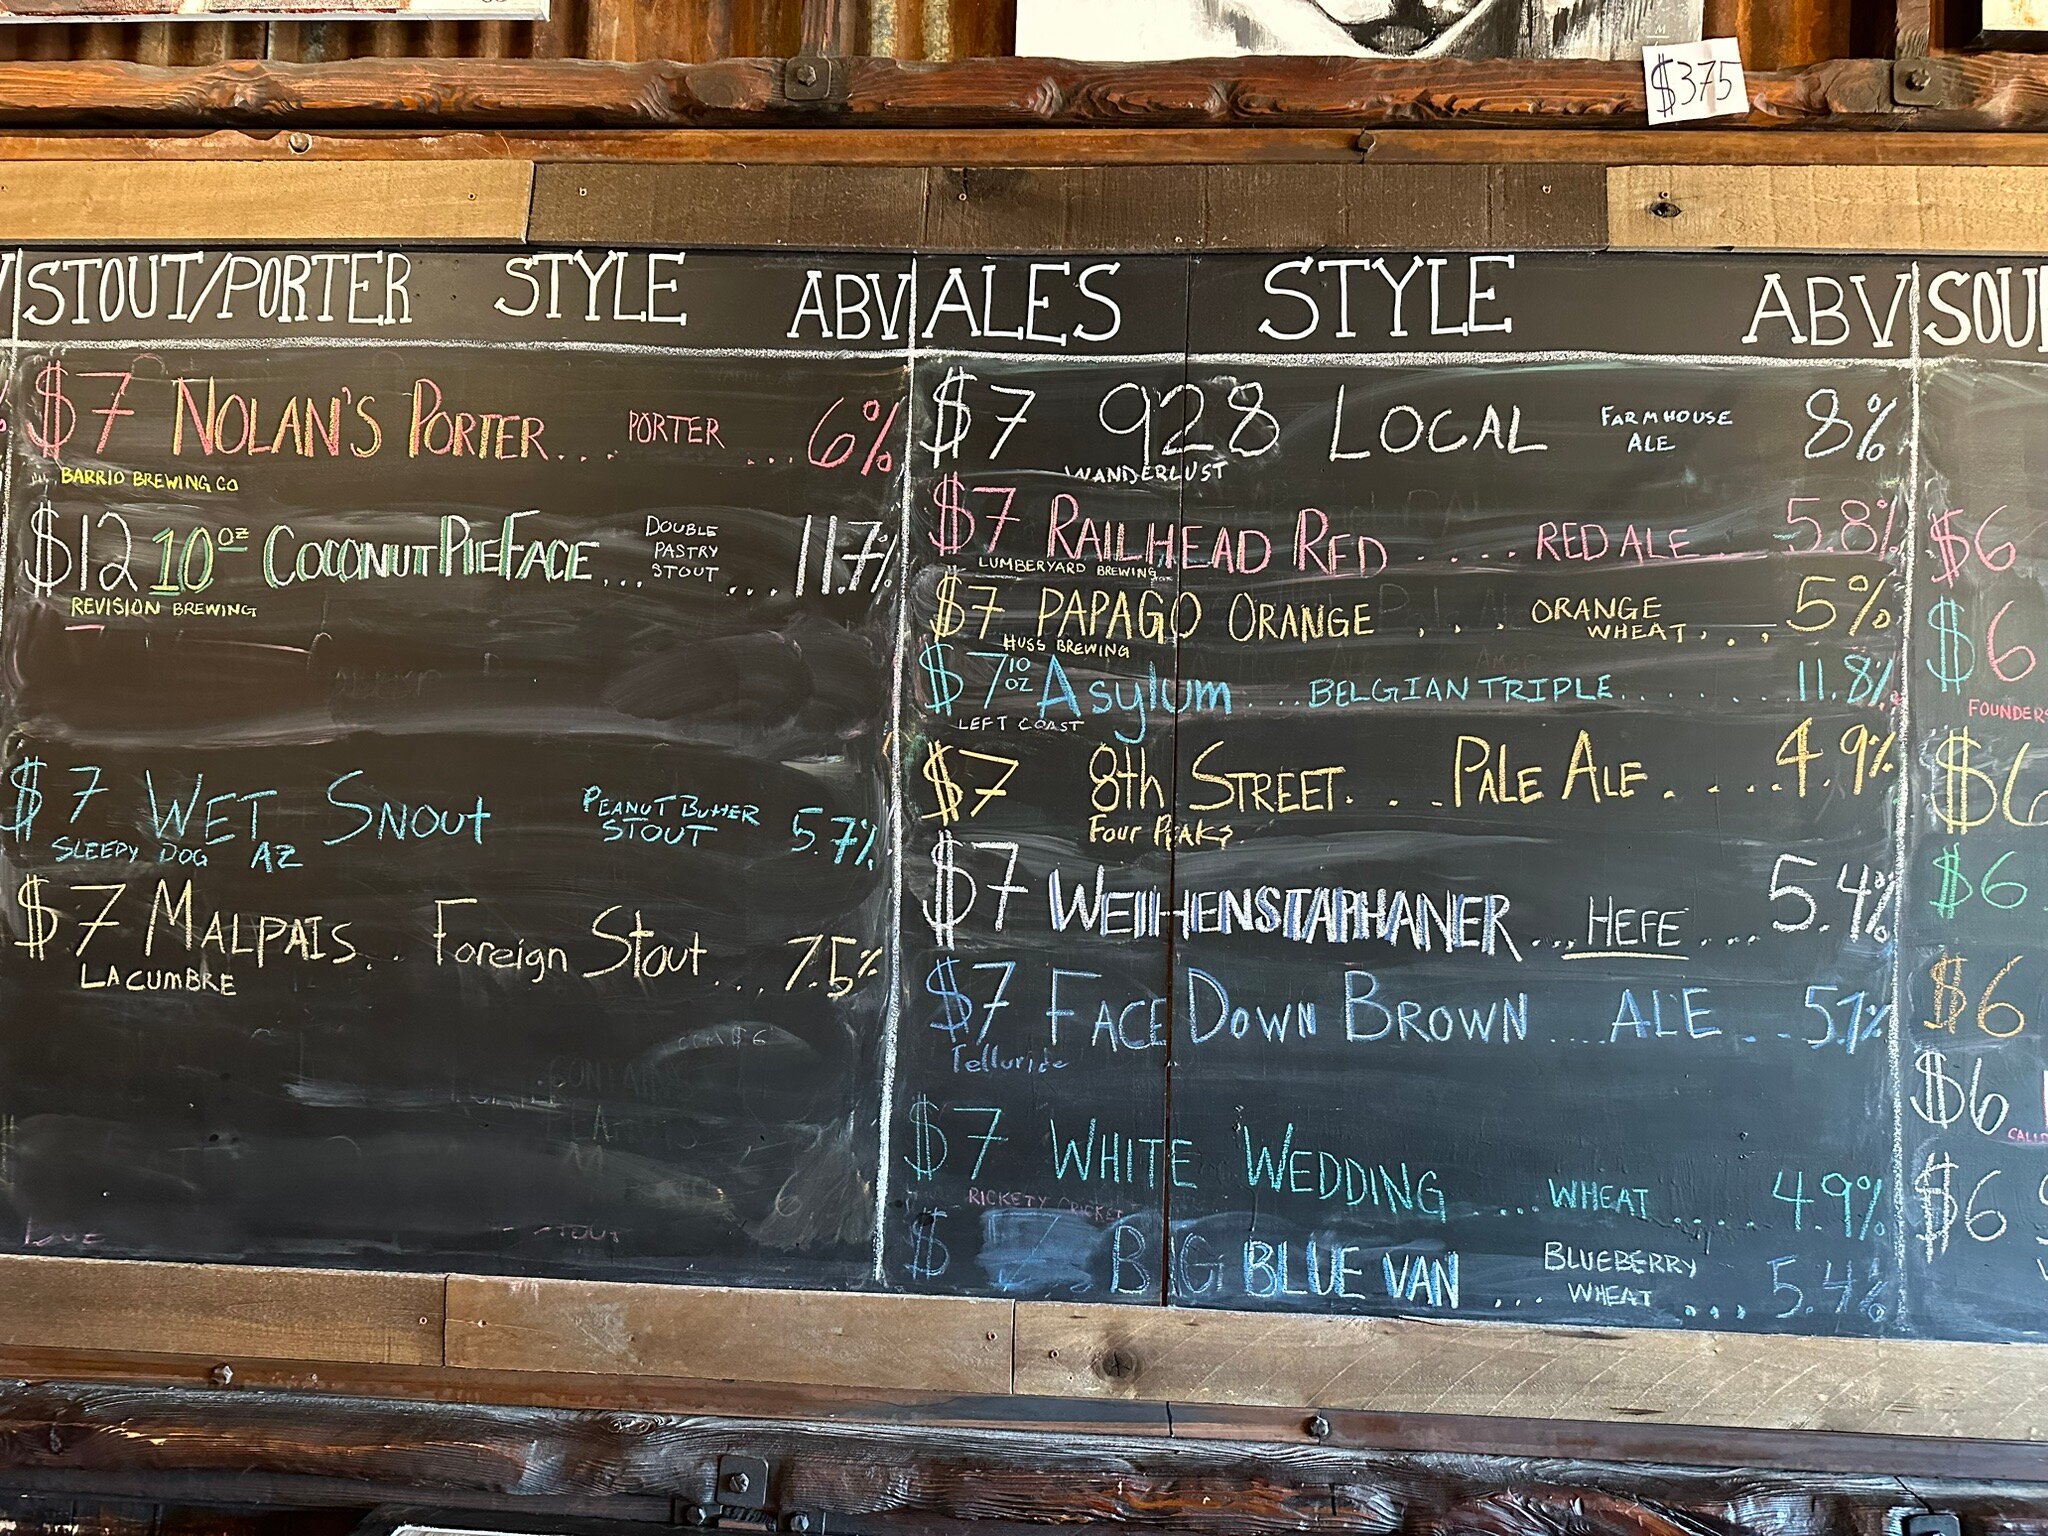 $375
STOUT/PORTER STYLE ABV
$7 NOLAN'S PORTER... PORTER ... 6%
BARRIO BREWING CO
$12 10oz COCONUT PIEFACE... DOUBLE PASTRY STOUT ... 11.7%
REVISION BREWING
$7 WET SNOUT PEANUT BUTTER STOUT 5.7%
SLEEPY DOG AZ
$7 MALPAIS... Foreign Stout ... 7.5%
LA CUMBRE
ALES STYLE ABV
$7 928 LOCAL FARMHOUSE ALE 8%
WANDERLUST
$7 RAILHEAD RED .... RED ALE 5.8%
LUMBERYARD BREWING
$7 PAPAGO ORANGE ... ORANGE WHEAT... 5%
HUSS BREWING
$7 10 OZ Asylum ... BELGIAN TRIPLE....... 11.8%
LEFT COAST
$7 8th STREET... PALE ALE..... 4.9%
FOUR PEAKS
$7 WEIIHENSTAPHANER ... HEFE ... 5.4%
$7 FACE DOWN BROWN .... ALE .. 5.7%
Telluride
$7 WHITE WEDDING .... WHEAT ..... 4.9%
RICKETY CRICKET
$7 BIG BLUE VAN ... BLUEBERRY WHEAT ... 5.4%
SOU
$6
$6
FOUNDERS
$6
$6
$6
$6
$6